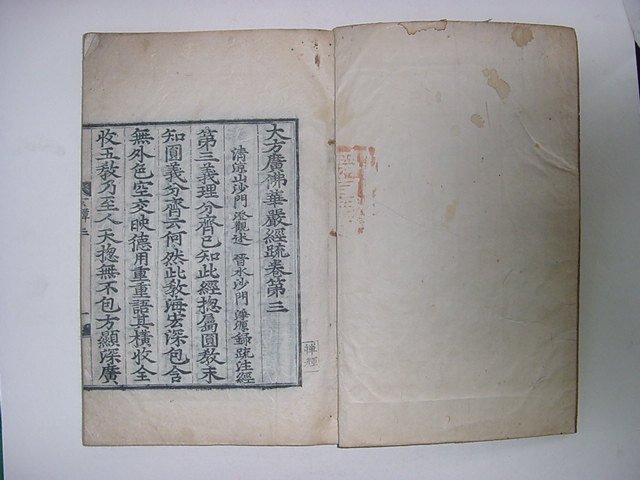 大方廣佛華嚴經䟽卷第三
清涼山沙門 澄觀述 晉水沙門 淨源錄䟽注經
第三義理分齊已知此經揔爲圓教未
知圓義分齊云何然此教海宏深包含
無外色空交映德用重重語其横收全
收五教乃至人天揔無不包方顯深廣